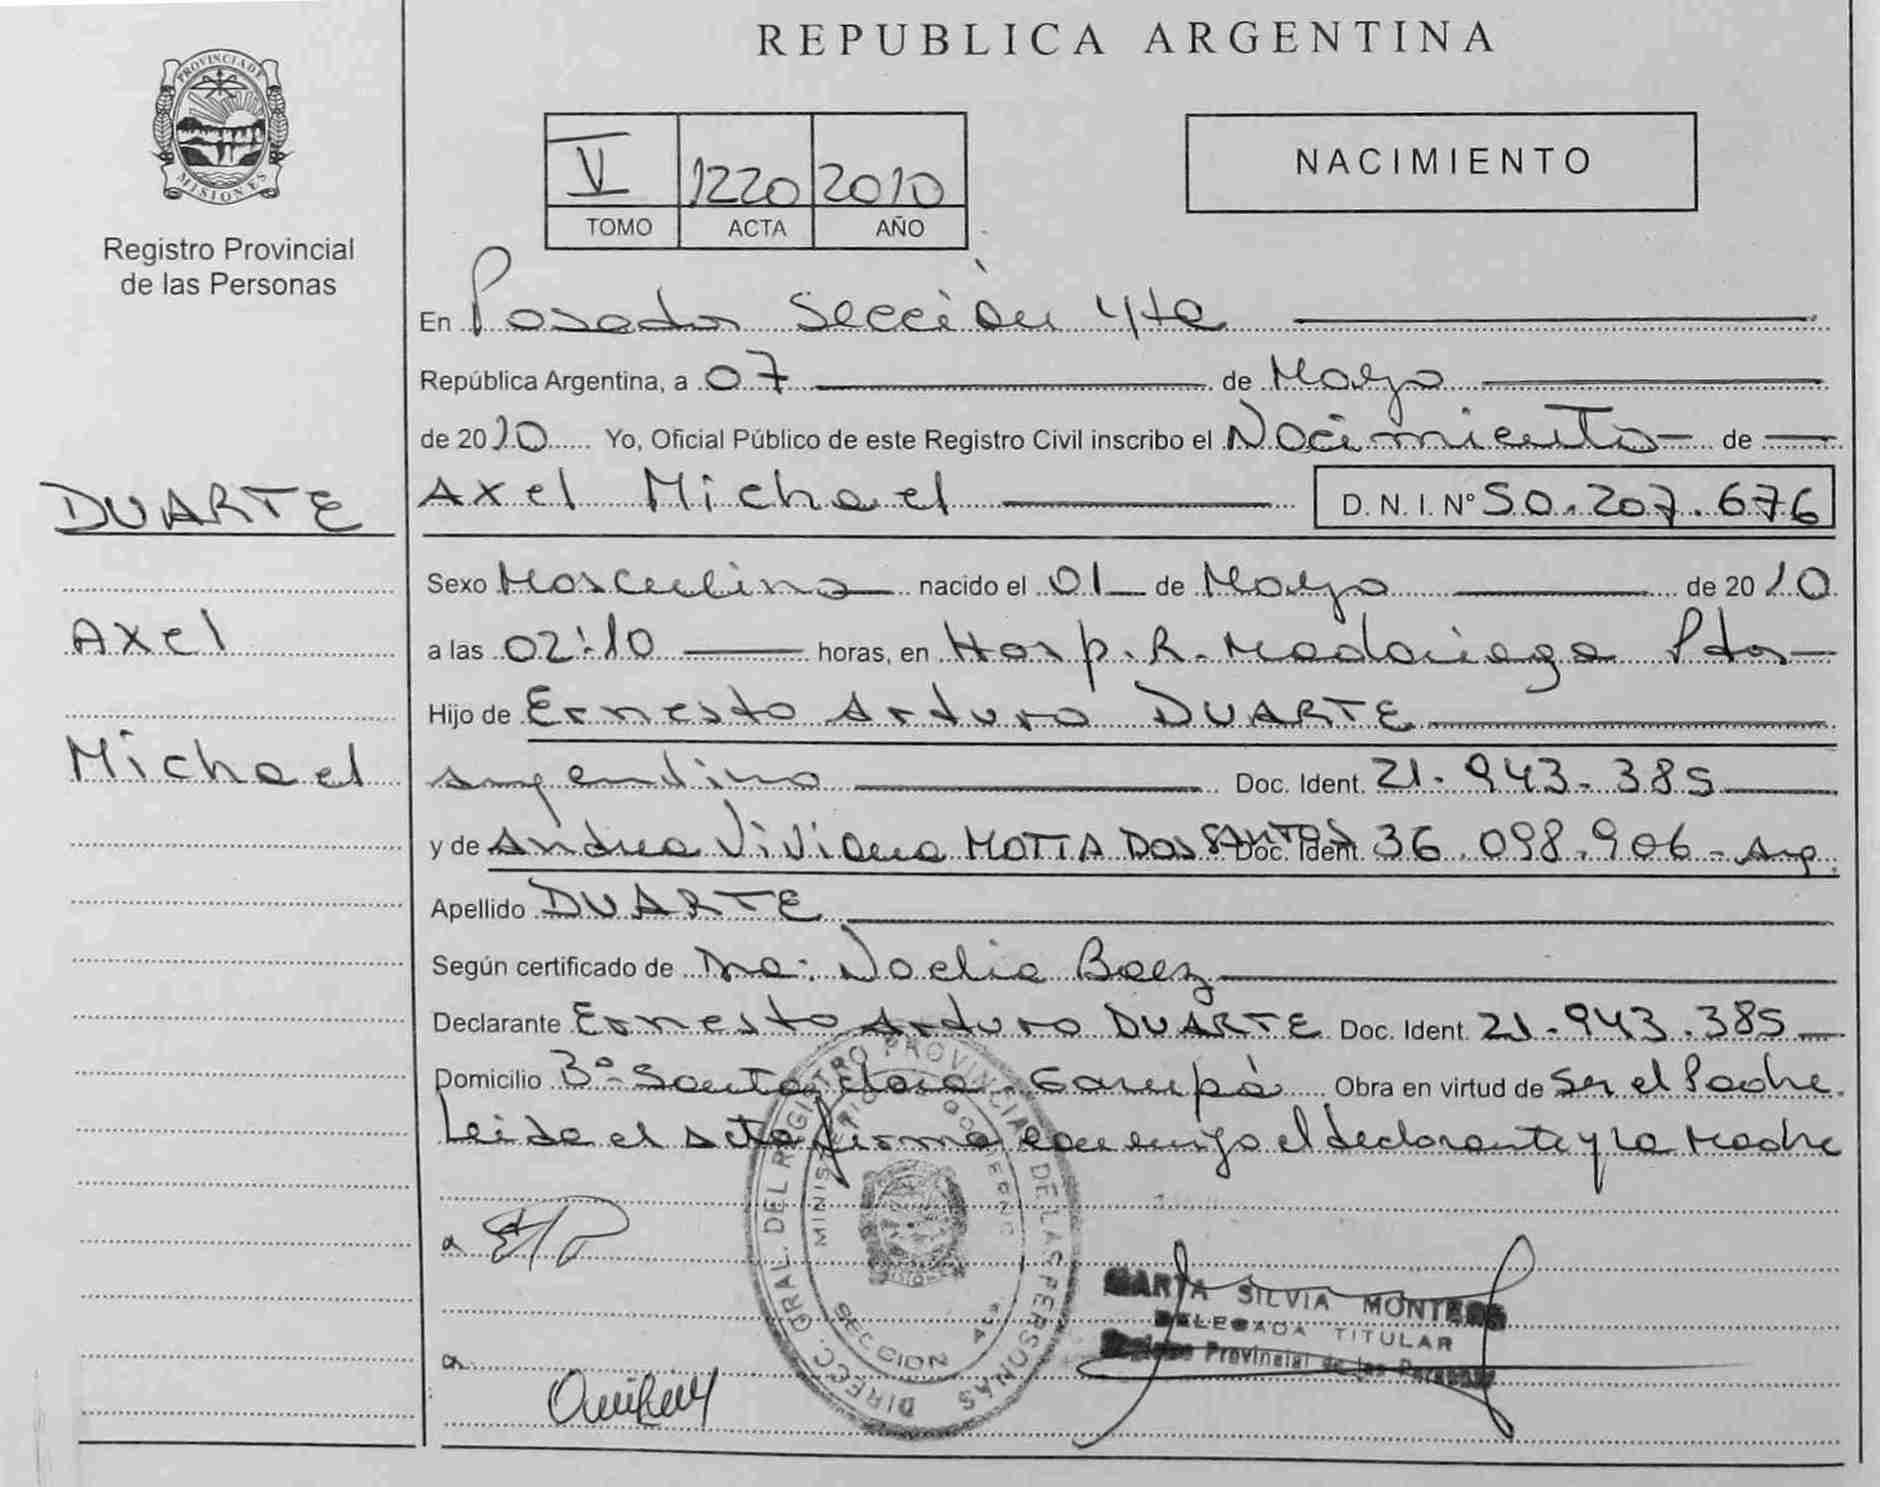 REPUBLICA ARGENTINA
PROVINCIA DE
MISIONES
Registro Provincial
de las Personas
V 1220 2010
TOMO ACTA AÑO
NACIMIENTO
En Posadas Sección 4ta
República Argentina, a 07 de Mayo
de 2010 Yo, Oficial Público de este Registro Civil inscribo el Nacimiento de
DUARTE
Axel Michael D. N. I. N° 50.207.676
Sexo Masculino nacido el 01 de Mayo de 2010
Axel
a las 02:10 horas, en Hosp. R. Madariaga Pdas
Hijo de Ernesto Arturo DUARTE
Michael
argentino Doc. Ident. 21.943.385
y de Andrea Viviana MOTTA DOS SANTOS Doc. Ident. 36.098.906 - Arg.
Apellido DUARTE
Según certificado de Dra: Noelia Baez
Declarante Ernesto Arturo DUARTE Doc. Ident. 21.943.385
Domicilio B° Santa Clara - Garupá Obra en virtud de Ser el Padre.
Leida el acta firma conmigo el declarante y la Madre
DIREC. GRAL. DEL REGISTRO PROVINCIAL DE LAS PERSONAS
MINISTERIO DE GOBIERNO
SECCION 4ta
a
MARTA SILVIA MONTERO
DELEGADA TITULAR
Registro Provincial de las Personas
a